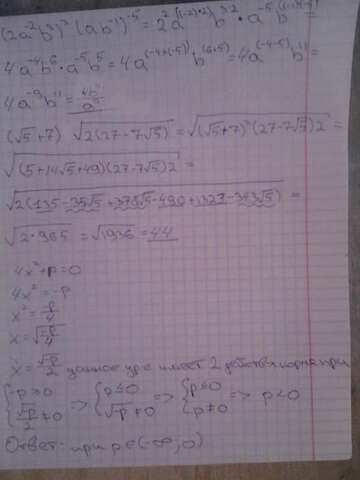 (2a⁻²b³)² (ab⁻¹)⁻⁵ = 2²a⁽⁽⁻²⁾*²⁾b³*² · a⁻⁵b⁽⁽⁻¹⁾*⁽⁻⁵⁾⁾ =
4a⁻⁴b⁶ · a⁻⁵b⁵ = 4a⁽⁻⁴⁺⁽⁻⁵⁾⁾b⁽⁶⁺⁵⁾ = 4a⁽⁻⁴⁻⁵⁾b¹¹ =
4a⁻⁹b¹¹ = 4b¹¹/a⁹
(√5+7) √2(27-7√5) = √(√5+7)²(27-7√5)2 =
√(5+14√5+49)(27-7√5)2 =
√2(135-35√5+378√5-490+1323-343√5) =
√2*968 = √1936 = 44
4x²+p=0
4x²=-p
x²=-p/4
x=√-p/4
x=√-p/2 данное ур-е имеет 2 действ корня при
{-p≥0 √-p/2≠0 => {p≤0 √-p≠0 => {p≤0 p≠0 => p<0
Ответ: при p∈(-∞;0)